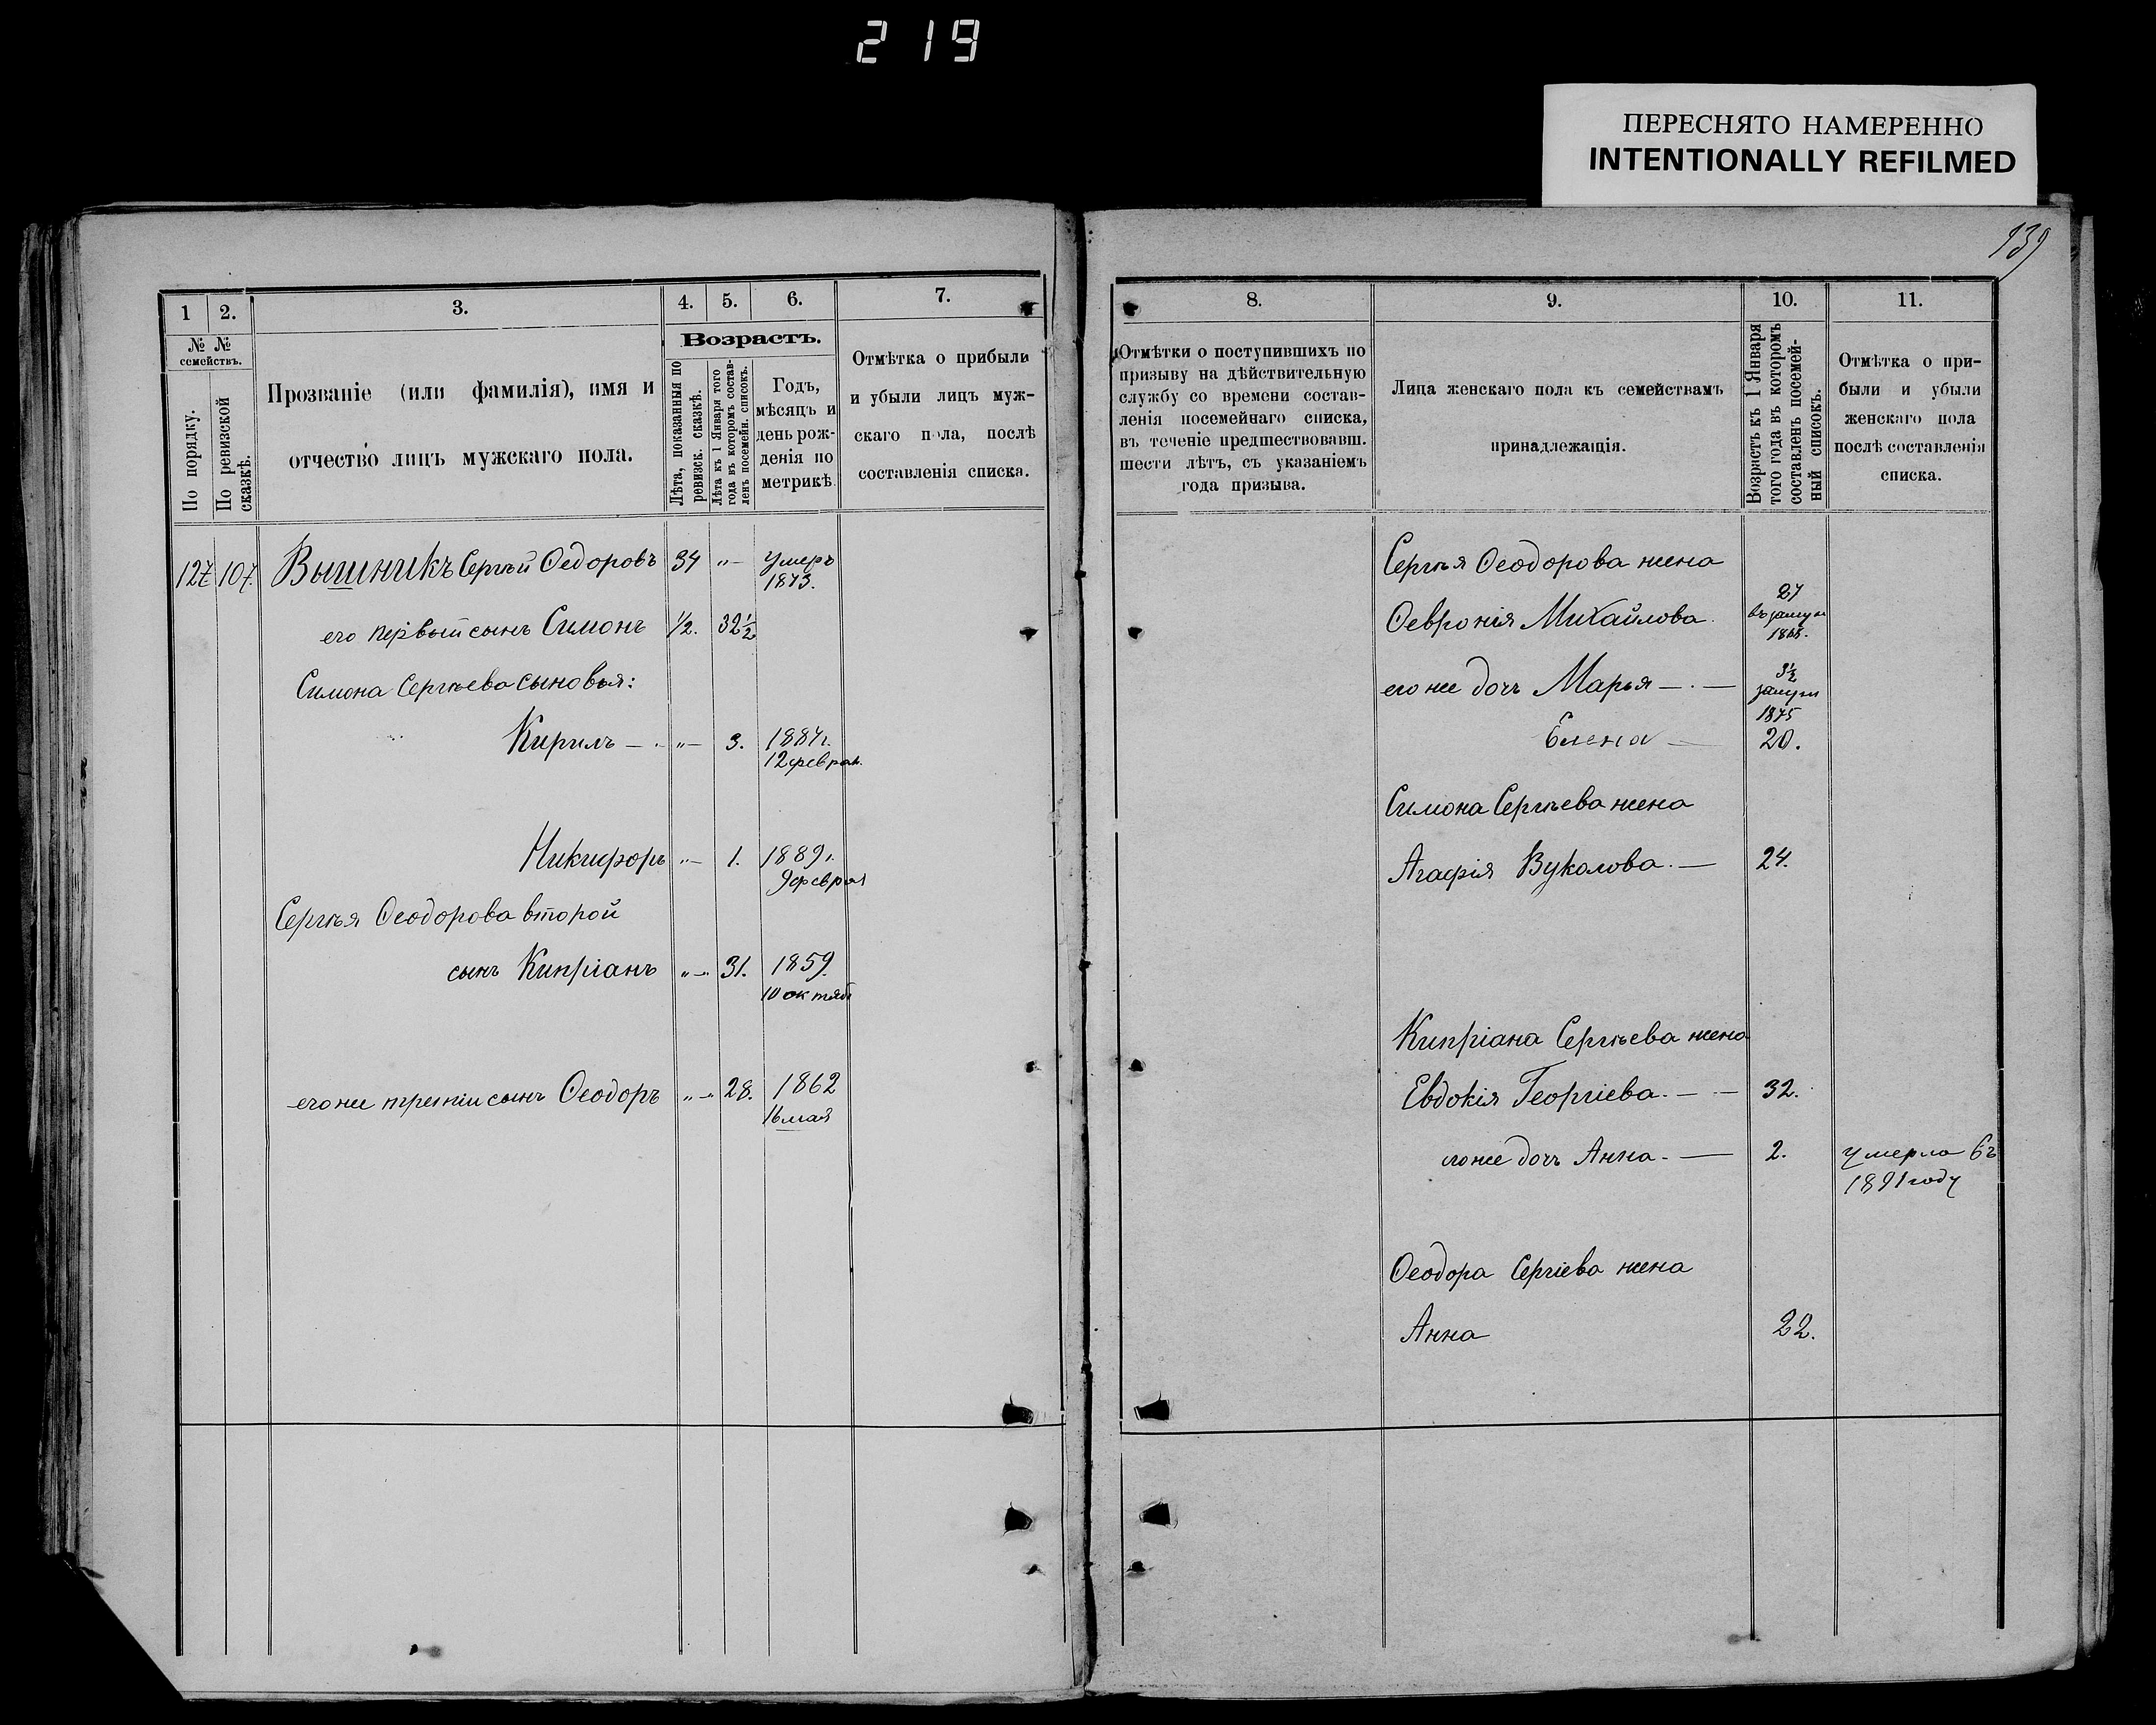 219
ПЕРЕСНЯТО НАМЕРЕННО
INTENTIONALLY REFILMED
139
1
2.
3.
4.
5.
6.
7.
№ №
семействъ.
По порядку.
По ревизской
сказкѣ.
Прозваніе (или фамилія), имя и
отчество лицъ мужскаго пола.
Возрастъ.
Лѣта, показанныя по
ревизск. сказкѣ.
Лѣта къ 1 Января того
года въ которомъ состав-
ленъ посемейн. списокъ.
Годъ,
мѣсяцъ и
день рож-
денія по
метрикѣ
Отмѣтка о прибыли
и убыли лицъ муж-
скаго пола, послѣ
составленія списка.
127 107. Вышникъ Сергѣй Ѳедоровъ 34 „— умеръ
1873.
его первый сынъ Симонъ 1/2. 32 1/2
Симона Сергѣева сыновья:
Кирилъ — „— 3. 1887г.
12 феврал.
Никифоръ „— 1. 1889г.
9 феврал
Сергѣя Ѳеодорова второй
сынъ Кипріанъ „—„ 31. 1859.
10 октяб
его же третій сынъ Ѳеодоръ „—„ 28. 1862
16 мая
8.
9.
10.
11.
Отмѣтки о поступившихъ по
призыву на дѣйствительную
службу со времени состав-
ленія посемейнаго списка,
въ теченіе предшествовавш.
шести лѣтъ, съ указаніемъ
года призыва.
Лица женскаго пола къ семействамъ
принадлежащія.
Возрастъ къ 1 Января
того года въ которомъ
составленъ посемей-
ный списокъ.
Отмѣтка о при-
были и убыли
женскаго пола
послѣ составленія
списка.
Сергѣя Ѳеодорова жена
Ѳевронія Михайлова. 27
въ замуж
1868.
его же дочь Марья — . — 3 1/2
замуж
1875
Елена — 20.
Симона Сергѣева жена
Агафія Вуколова. — 24.
Кипріана Сергѣева жена
Евдокія Георгіева. — — 32.
его же дочь Анна. — 2. умерла въ
1891 году
Ѳеодора Сергіева жена
Анна 22.